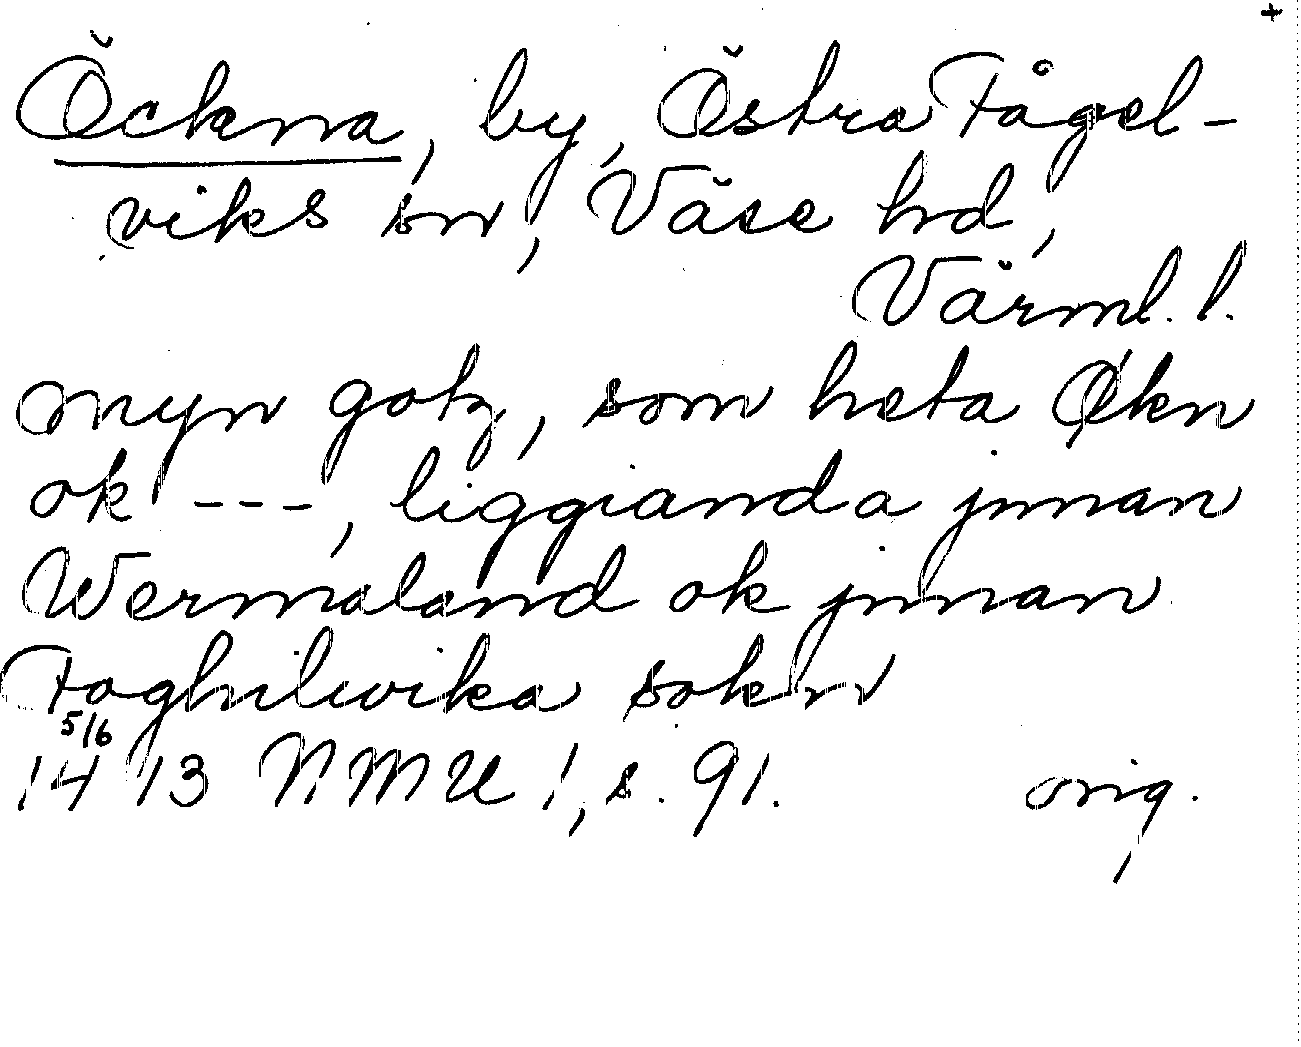 +
Öckna, by, Östra Fågel-
viks sn, Väse hd,
Värml. l.
myn gotz, som heta Økn
ok ---, liggianda jnnan
Wermaland ok jnnan
Foghilwika sokn
5/6
1413 NMU 1, s. 91. orig.